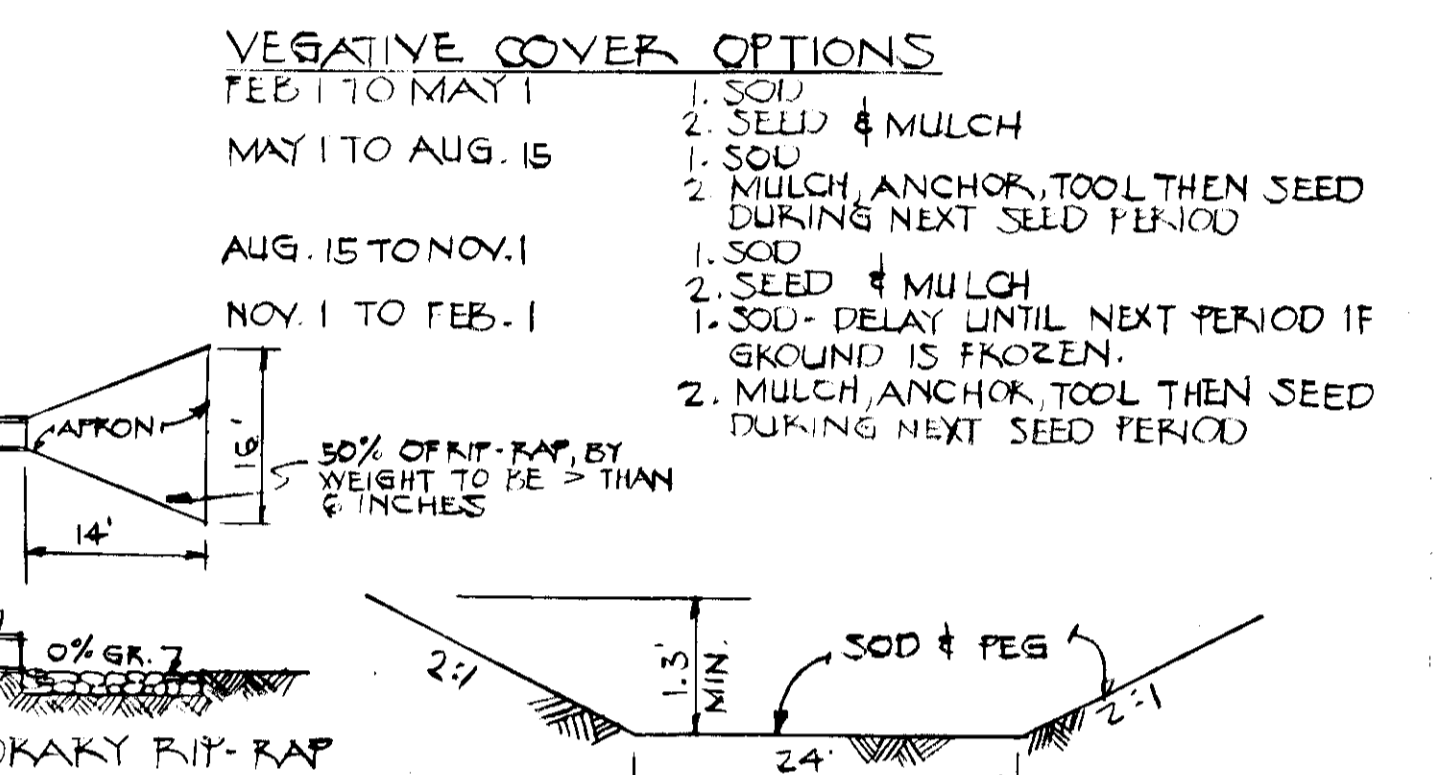 VEGATIVE COVER OPTIONS
FEB 1 TO MAY 1
1. SOD
2. SEED & MULCH
MAY 1 TO AUG. 15
1. SOD
2. MULCH, ANCHOR, TOOL THEN SEED
DURING NEXT SEED PERIOD
AUG. 15 TO NOV. 1
1. SOD
2. SEED & MULCH
NOV. 1 TO FEB. 1
1. SOD - DELAY UNTIL NEXT PERIOD IF
GROUND IS FROZEN.
2. MULCH, ANCHOR, TOOL THEN SEED
DURING NEXT SEED PERIOD
APRON
16'
50% OF RIP-RAP, BY
WEIGHT TO BE > THAN
6 INCHES
14'
0% GR.
ORARY RIP-RAP
2:1
1.3'
MIN.
SOD & PEG
2:1
24'